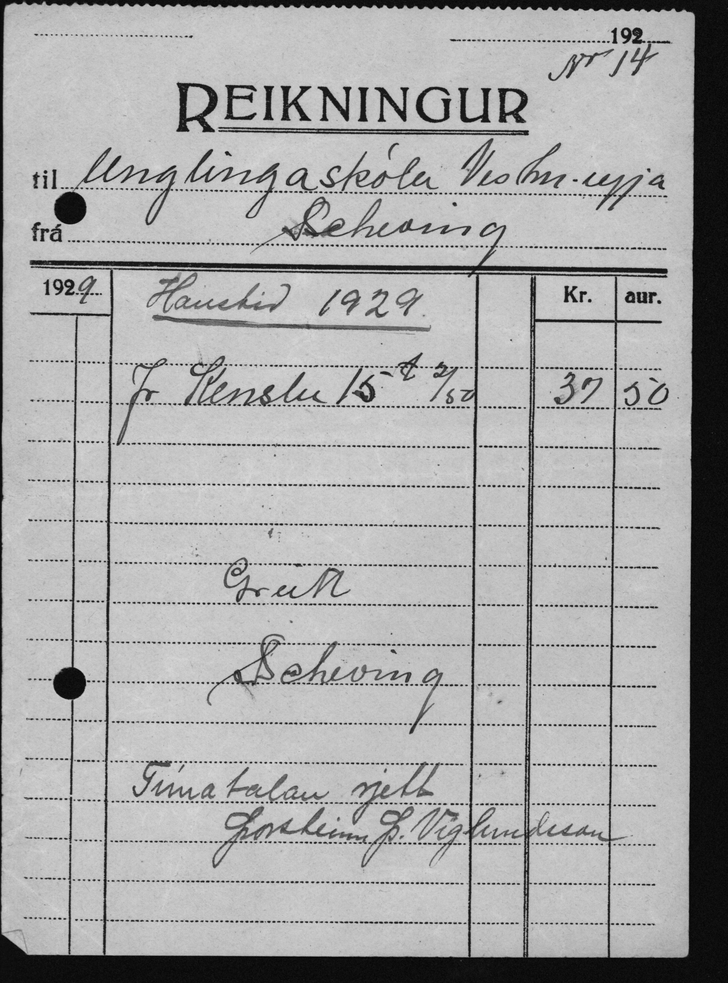 192
Nr 14
REIKNINGUR
til Unglingaskóla Vestm.eyja
frá Scheving
1929 Haustið 1929 Kr. aur.
fr Kenslu 15 t 2/50 37 50
Greitt
Scheving
Tímatalan rjett
Þorsteinn Þ. Víglundsson